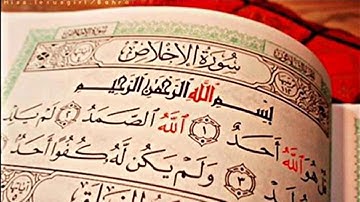 سُورَةُ الإِخْلَاصِ
بِسْمِ اللَّهِ الرَّحْمَٰنِ الرَّحِيمِ
قُلْ هُوَ اللَّهُ أَحَدٌ ١ اللَّهُ الصَّمَدُ ٢ لَمْ يَلِدْ
يُولَدْ ٣ وَلَمْ يَكُن لَّهُ كُفُوًا أَحَدٌ